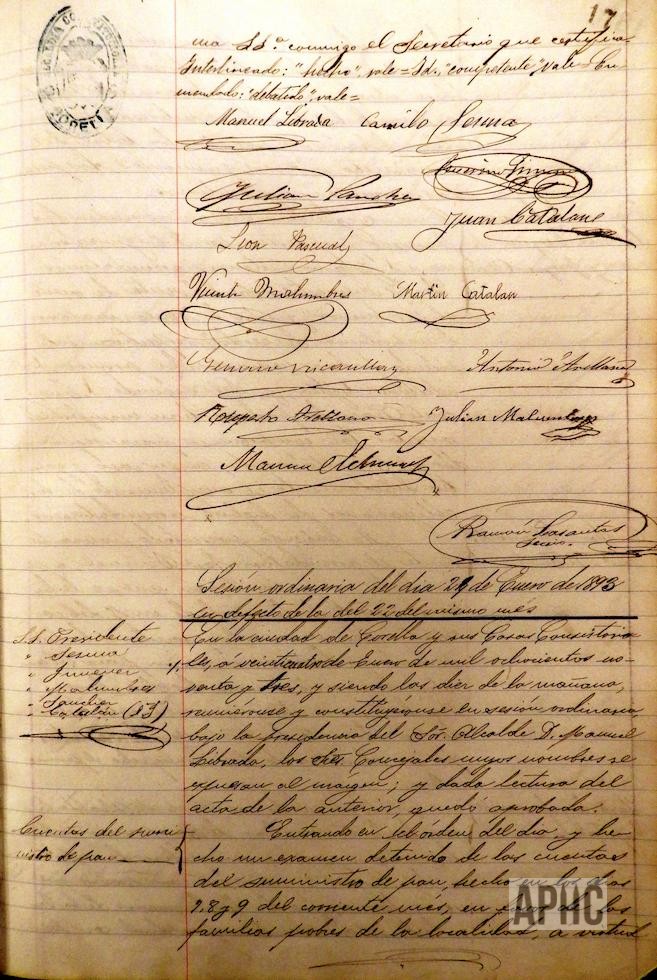 17
ma S.Sª. conmigo el Secretario que certifica
Interlineado: "hecho", vale = Id. "competente", vale = En
mendado: "debatido", vale =
Manuel Librada Camilo Sesma
Julian Sanchez
Juan Catalan
Leon Pascual
Vicente Malumbres Martin Catalan
Antonio Arellano
Arellano Julian Malumbres
Ramón Lasantas
Secrio.
Sesión ordinaria del dia 24 de Enero de 1893
en defecto de la del 22 del mismo mes
S.S. Presidente
" Sesma
" Jimenez
" Malumbres
" Sanchez
" Catalan (13)
En la ciudad de Corella y sus Casas Consistoria
les, á veinticuatro de Enero de mil ochocientos no-
venta y tres, y siendo las diez de la mañana,
reunieronse y constituyeronse en sesión ordinaria,
bajo la presidencia del Sor. Alcalde D. Manuel
Librada, los Sres. Concejales cuyos nombres se
expresan al márgen; y dada lectura del
acta de la anterior, quedó aprobada.
Cuentas del sumi
nistro de pan
Entrando en el órden del dia, y he-
cho un examen detenido de las cuentas
del suministro de pan, hecho en los dias
7. 8 y 9 del corriente mes, en de las
familias pobres de la localidad, á virtud
APHC